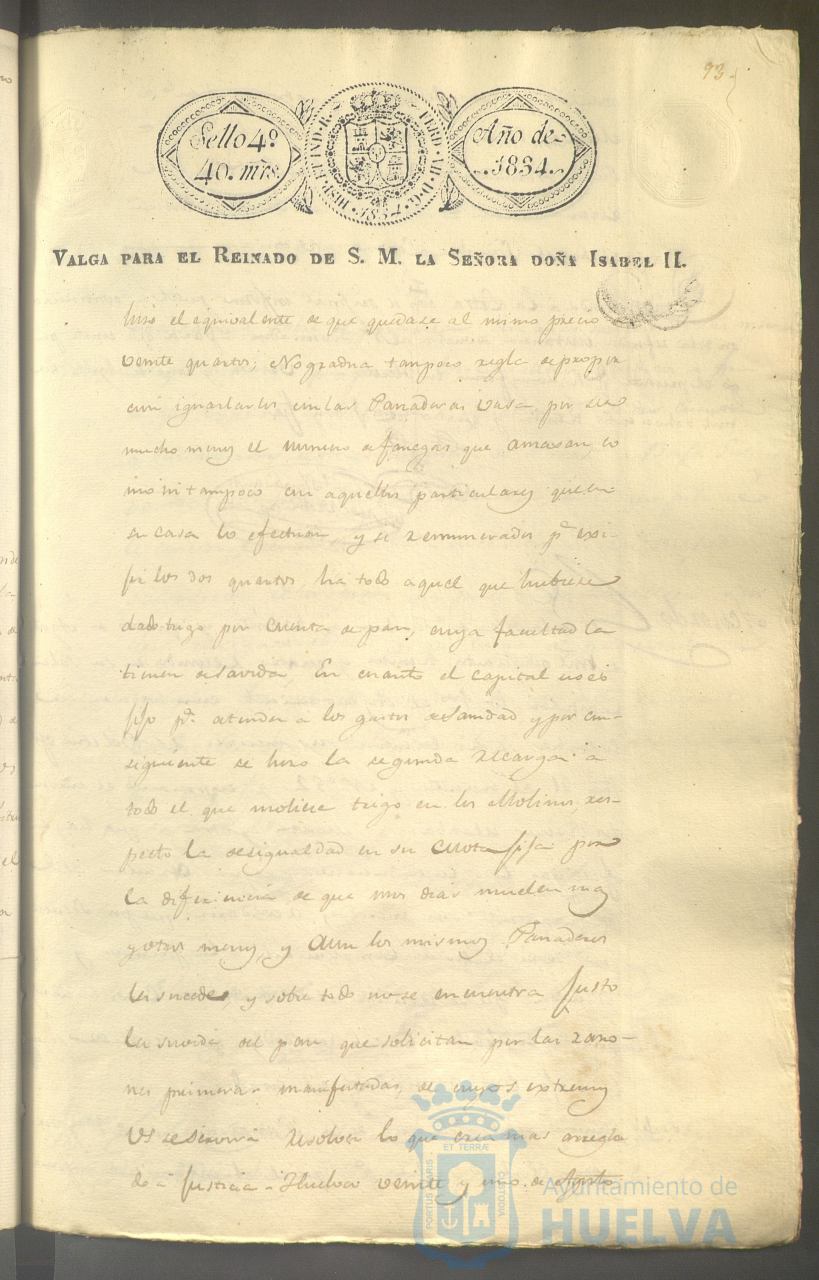 93
Sello 4º
40. mrs.
HISP. ET IND. R. FERD. VII. D. G. 1834
Año de
1834.
VALGA PARA EL REINADO DE S. M. LA SEÑORA DOÑA ISABEL II.
hiso el equivalente de que quedase al mimo precio
veinte quartos; No gradua tampoco regla de propor
cion igualarlos con las Panaderas vasa por ser
mucho menos el numero de fanegas que amasan, co
mo ni tampoco con aquellos particulares que en
su casa lo efectuan y se remunerados pª exi-
jir los dos quartos, ha todo aquel que hubiese
dado trigo por cuenta de pan, cuya facultad la
tienen . En cuanto el capital no es
fijo pª. atender a los gastos de Sanidad y por con-
siguiente se hizo la segunda recarga a
todo el que moliese trigo en los Molinos, res-
pecto la desigualdad en su cuota fija por
la diferiencia de que unos dias muelen mas
y otros menos, y aun los mismos Panaderos
les sucede, y sobre todo no se encuentra justo
la suvida del pan que solicitan por las razo-
nes primeras manifestadas, de cuyos extremos
VS se servirá resolver lo que crea mas arregla
do á Justicia - Huelva veinte y uno de Agosto
PORTUS MARIS ET TERRÆ CUSTODIA
Ayuntamiento de
HUELVA